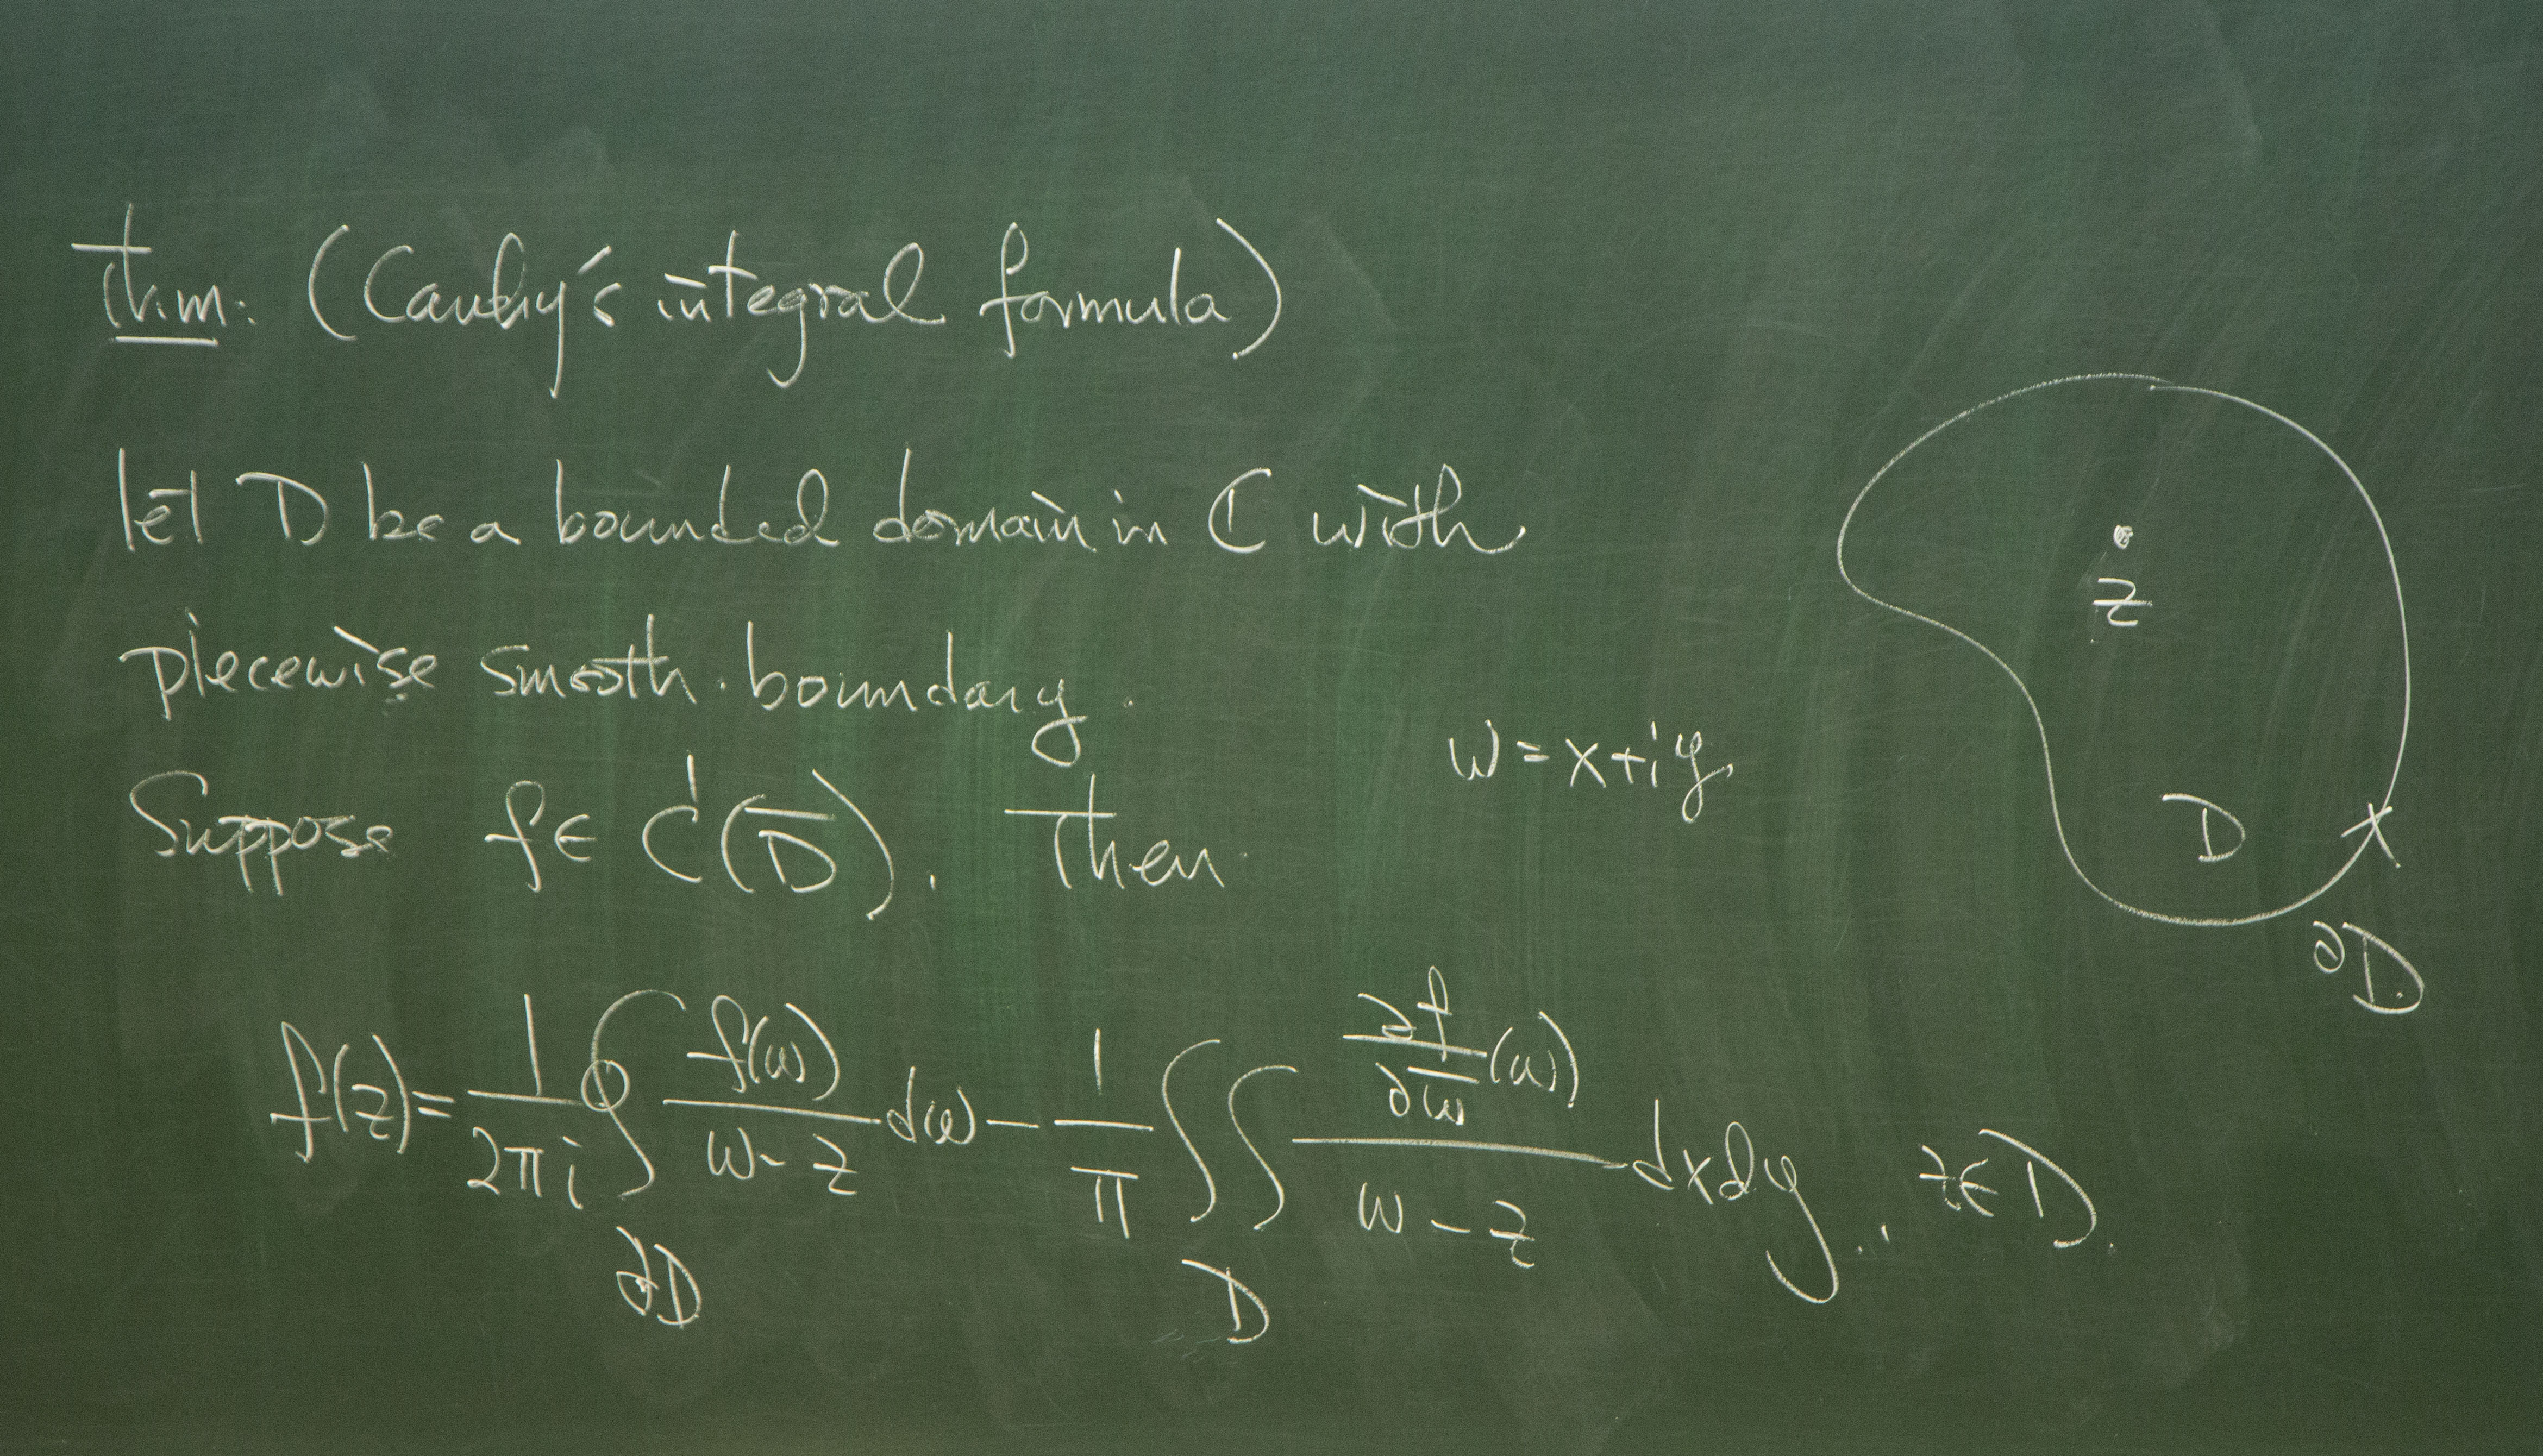 Thm: (Cauchy's integral formula)
let D be a bounded domain in ℂ with
piecewise smooth boundary.
w = x+iy
Suppose f ∈ C¹(D̅). Then
f(z) = 1/(2πi) ∮_∂D f(w)/(w-z) dw - 1/π ∬_D (∂f/∂w̅ (w))/(w-z) dxdy, z∈D.
z
D
∂D